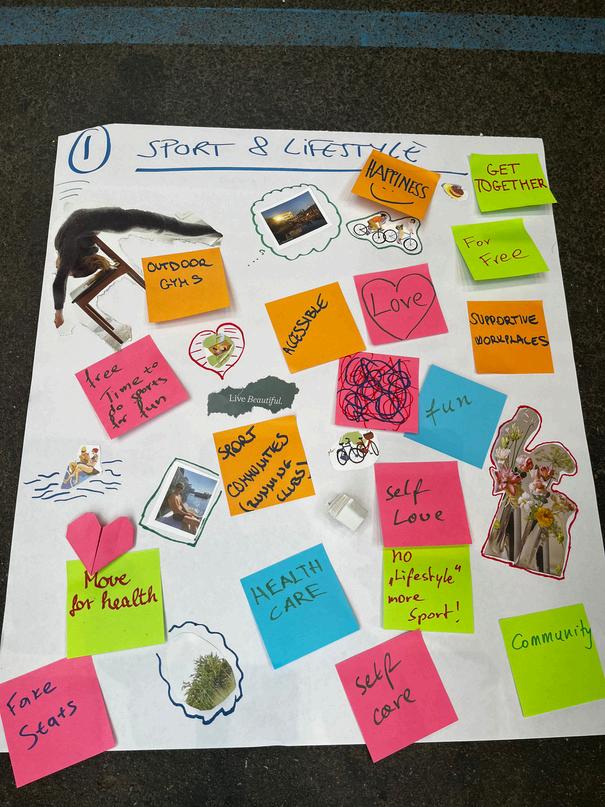 1
SPORT & LiFESTYLE
HAPPINESS
GET
TOGETHER
For
Free
OUTDOOR
GYMS
ACCESSIBLE
Love
SUPPORTIVE
WORKPLACES
free
Time to
do sports
for fun
Live Beautiful.
fun
SPORT
COMMUNITIES
(RUNNING
CLUBS!)
self
Love
Move
for health
HEALTH
CARE
no
„Lifestyle“
more
Sport!
Community
self
care
Fake
Stats